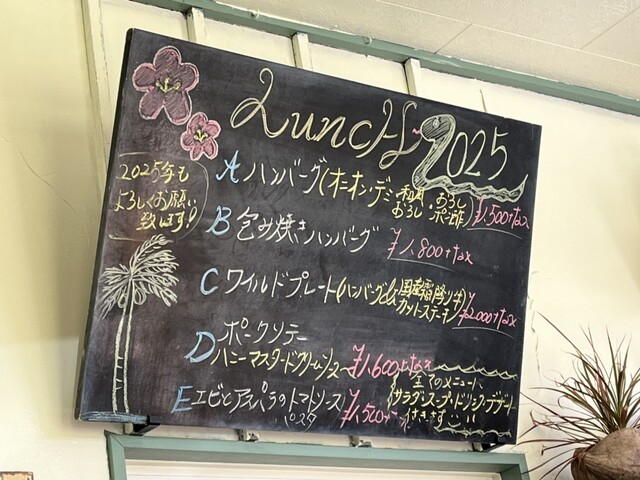 LuncH 2025
2025年も
よろしくお願い
致します!
A ハンバーグ(オニオン・デミ・和風・おろし
おろしポン酢) ¥1,500+tax
B 包み焼きハンバーグ
¥1,800+tax
C ワイルドプレート(ハンバーグ&国産霜降り牛
カットステーキ) ¥2,000+tax
D ポークソテー
ハニーマスタードクリームソース ¥1,600+tax
E エビとアスパラのトマトソース
パスタ ¥1,500
全てのメニューに
サラダ・スープ・ドリンク・デザート
付きます